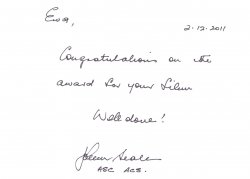 Ewa,
2-12-2011
Congratulations on the
award for your film
Well done!
John Seale
ASC ACS.